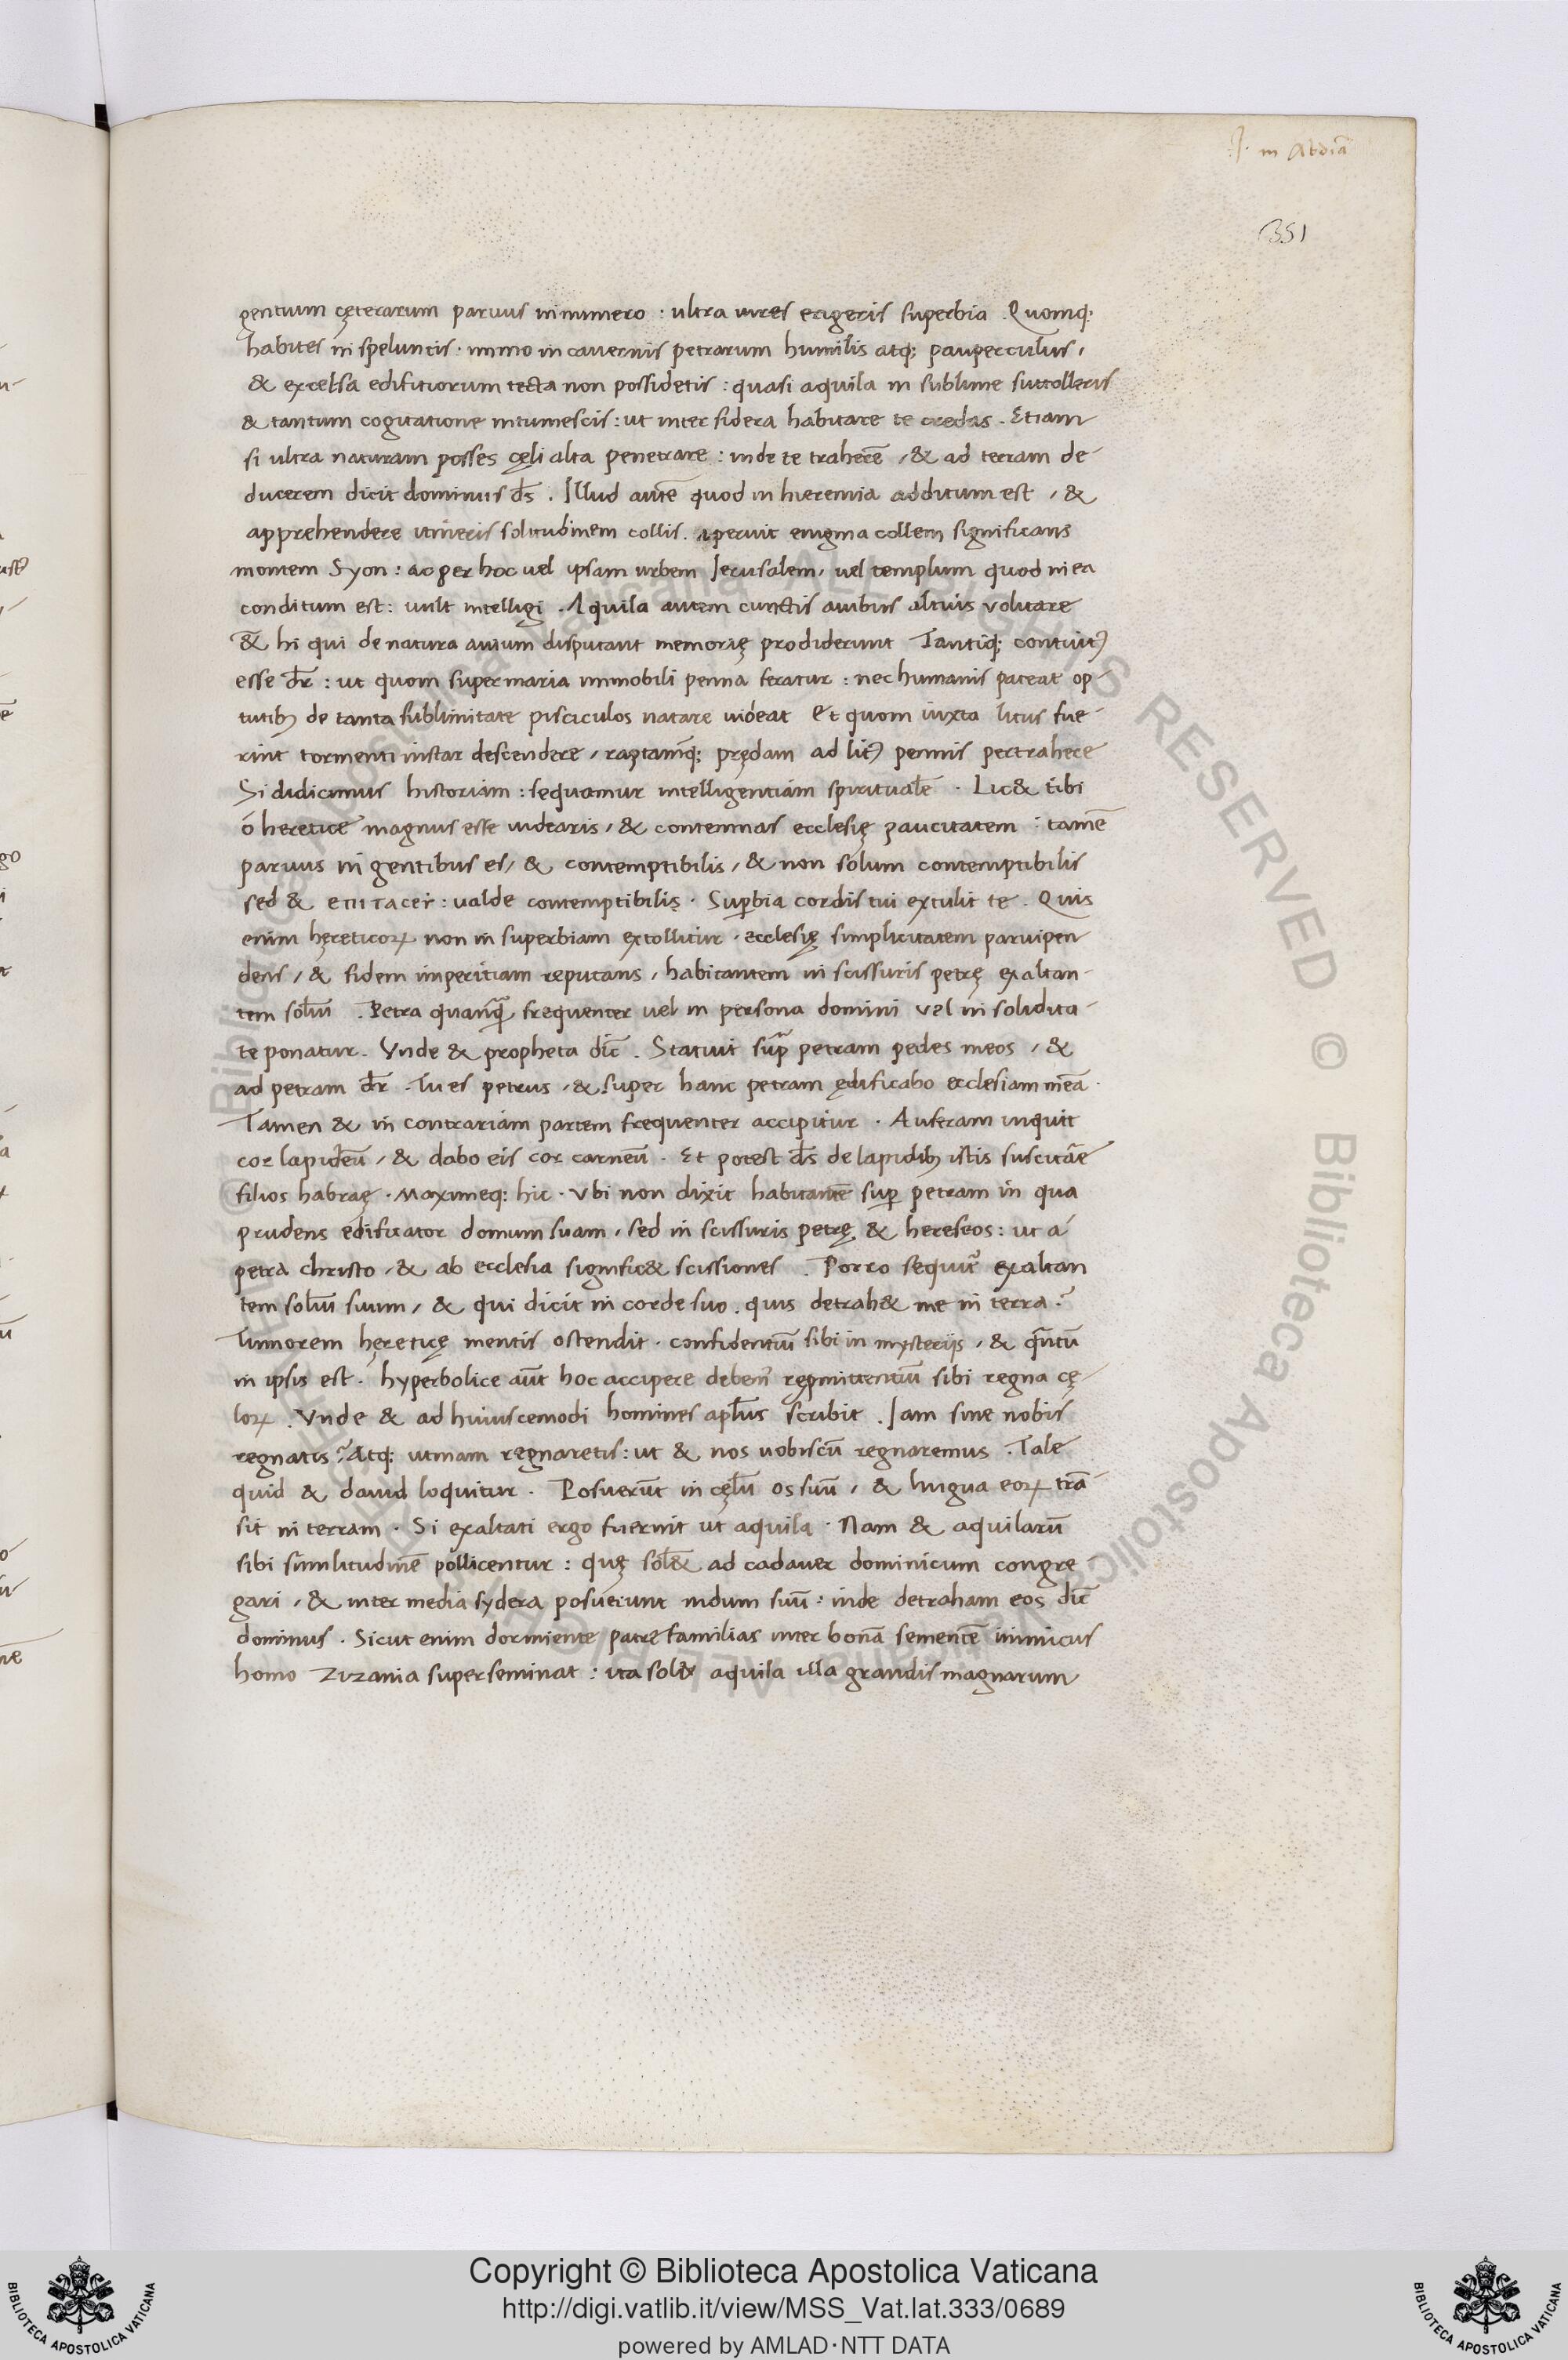 J. in Abdiã
351
gentium cęterarum paruus in numero : ultra uires erigeris superbia . Quomq;
habites in speluncis · immo in cauernis petrarum humilis atq; pauperculus,
& excelsa edifitiorum tecta non possidetis : quasi aquila in sublime suttolleris
& tantum cogitatione intumescis : ut inter sidera habitare te credas . Etiam
si ultra naturam posses cęli alta penetrare : inde te traherẽ , & ad terram de-
ducerem dicit dominus d̃s . Illud autẽ quod in hieremia additum est , &
apprehendere solitudinem collis . aperuit enigma collem significans
montem Syon : ac per hoc uel ipsam urbem Jerusalem, uel templum quod in ea
conditum est : uult intelligi . Aquila autem cunctis auibus altius volitare
& hi qui de natura auium disputant memorię prodiderunt Tantiq; contuitꝰ
esse dr̃ : ut quom super maria immobili penna feratur : nec humanis pateat op-
tutibꝫ de tanta sublimitate pisciculos natare uideat Et quom iuxta litus fue-
rint tormenti instar descendere , raptamq; prędam ad litꝰ pennis pertrahere
Si didicimus historiam : sequamur intelligentiam spiritualẽ · Lic& tibi
ó heretice magnus esse uidearis, & contemnas ecclesię paucitatem : tamẽ
paruus in gentibus es, & contemptibilis, & non solum contemptibilis
sed & : ualde contemptibilis · Suꝑbia cordis tui extulit te . Quis
enim hęreticoꝝ non in superbiam extollitur , ecclesię simplicitatem paruipen
dens , & fidem imperitiam reputans , habitantem in scissuris petrę exaltan-
tem soliũ . Petra quanq̃ frequenter uel in persona domini vel in solidita-
te ponatur . Vnde & propheta dic̃ . Statuit sup̃ petram pedes meos , &
ad petram dr̃ . Tu es petrus , & super hanc petram ędificabo ecclesiam meã .
Tamen & in contrariam partem frequenter accipitur . Auferam inquit
cor lapideũ , & dabo eis cor carneũ . Et potest d̃s de lapidibꝫ istis suscitãe
filios habraę . Maximeq; hic . Vbi non dixit habitantẽ suꝑ petram in qua
prudens edificator domum suam, sed in scissuris petrę & hereseos : ut a
petra christo , & ab ecclesia signific& scissiones . Porro sequit̃ exaltan
tem soliũ suum , & qui dicit in corde suo . quis detrah& me in terra ?
Tumorem hęreticę mentis ostendit . confidentiũ sibi in mysterijs , & q̃ntũ
in ipsis est . hyperbolice aũt hoc accipere debem̃ sibi regna cę-
loꝝ . Vnde & ad huiuscemodi homines apl̃us scribit . Jam sine nobis
regnatis ? Atq; utinam regnaretis : ut & nos uobiscũ regnaremus . Tale
quid & dauid loquitur . Posuerũt in cęlũ os suũ , & lingua eoꝝ trã-
sit in terram . Si exaltati ergo fuerint ut aquila . Nam & aquilarũ
sibi similitudinẽ pollicentur : quę sol& ad cadauer dominicum congre-
gari , & inter media sydera posuerunt nidum suũ : inde detraham eos dic̃
dominus . Sicut enim dormiente patre familias inter bonã sementẽ inimicus
homo zizania superseminat : ita sol& aquila illa grandis magnarum
Copyright © Biblioteca Apostolica Vaticana
http://digi.vatlib.it/view/MSS_Vat.lat.333/0689
powered by AMLAD·NTT DATA
BIBLIOTECA APOSTOLICA VATICANA
BIBLIOTECA APOSTOLICA VATICANA